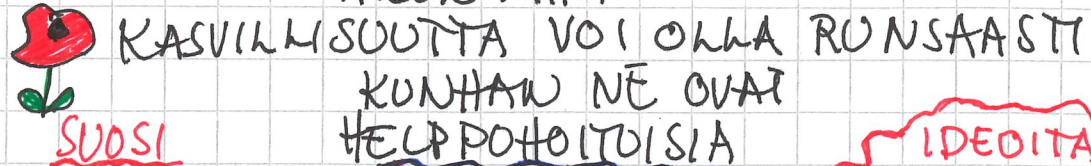 KASVILLISUUTTA VOI OLLA RUNSAASTI
KUNHAN NE OVAT
HELPPOHOITOISIA
SUOSI
IDEOITA